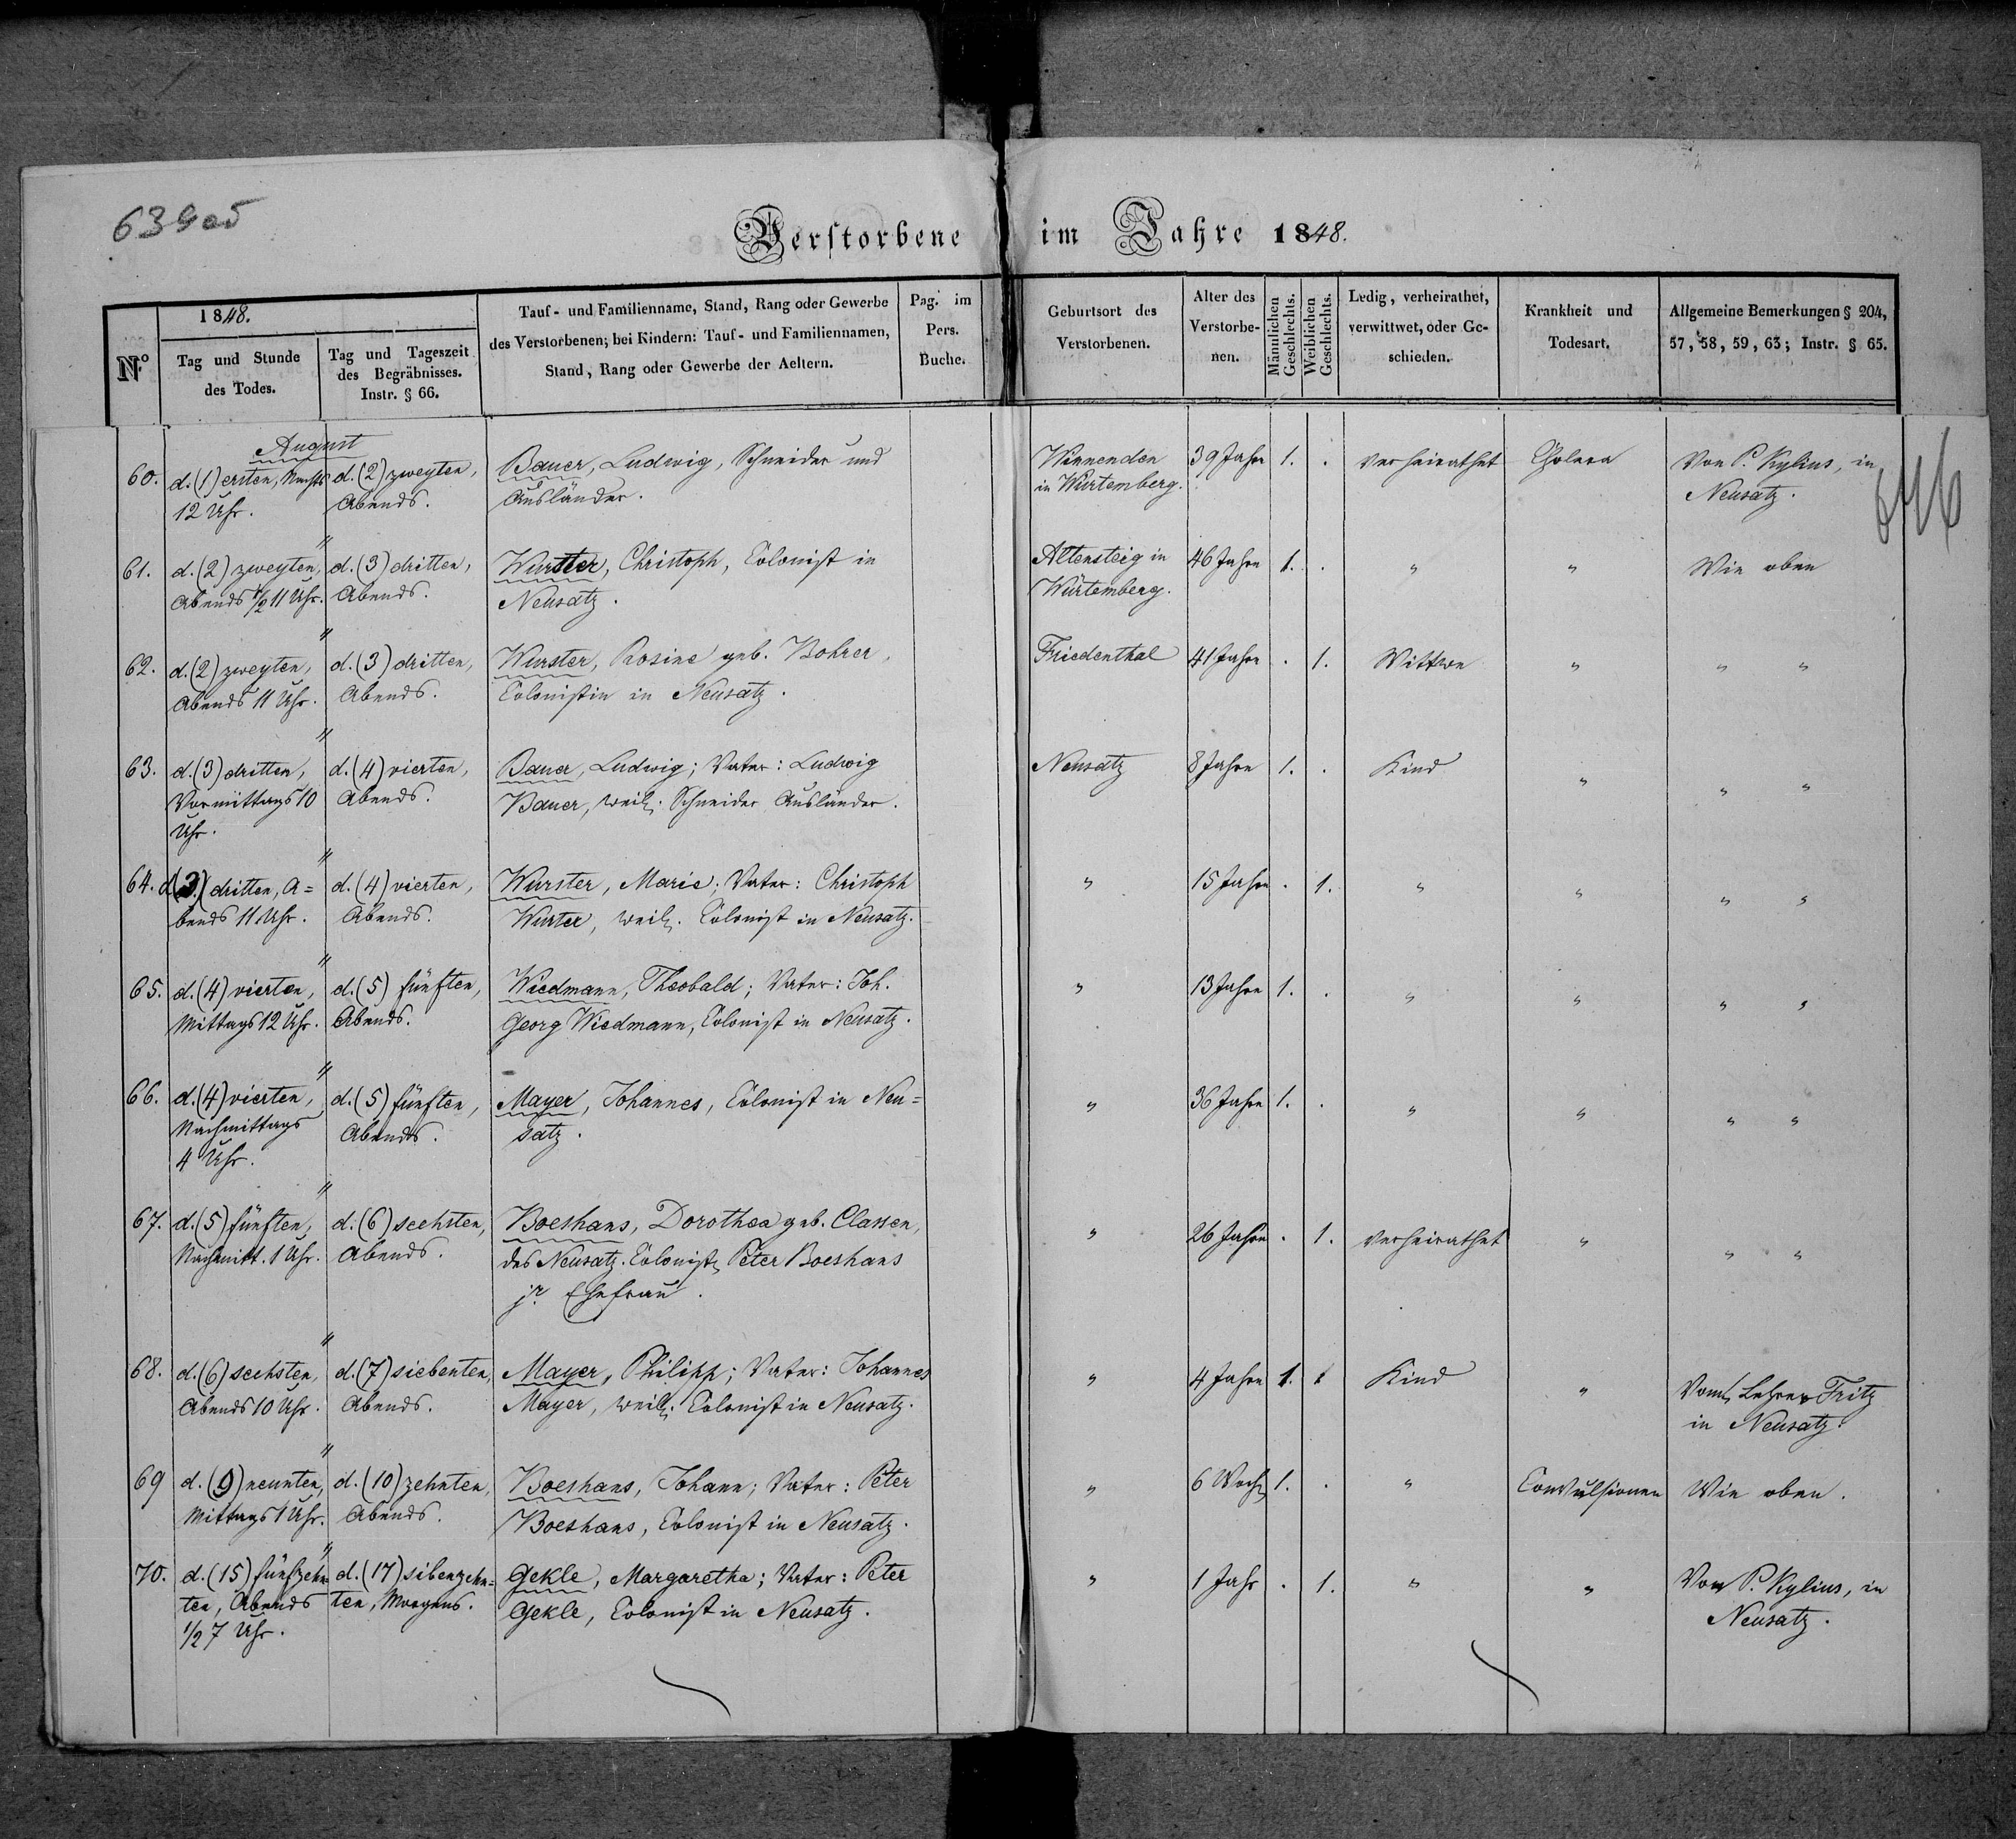 639ob
Verstorbene im Jahre 1848.
646
No
1848.
Tag und Stunde des Todes.
Tag und Tageszeit des Begräbnisses. Instr. § 66.
Tauf- und Familienname, Stand, Rang oder Gewerbe
des Verstorbenen; bei Kindern: Tauf- und Familiennamen,
Stand, Rang oder Gewerbe der Aeltern.
Pag. im Pers. Buche.
Geburtsort des Verstorbenen.
Alter des Verstorbe-nen.
Männlichen Geschlechts.
Weiblichen Geschlechts.
Ledig, verheirathet, verwittwet, oder Ge-schieden.
Krankheit und Todesart.
Allgemeine Bemerkungen § 204,
57, 58, 59, 63; Instr. § 65.
August
60. d. (1) ersten, Nachts d. (2) zweyten, Bauer, Ludwig, Schneider und Winnenden 39 Jahr 1. . verheirathet Cholera Von P. Kylius, in
12 Uhr. Abends. Ausländer. in Würtemberg. Neusatz.
"
61. d. (2) zweyten, d. (3) dritten, Wurster, Christoph, Colonist in Altensteig in 46 Jahre 1. . " " Wie oben
Abends 1/2 11 Uhr. Abends. Neusatz. Würtemberg.
"
62. d. (2) zweyten, d. (3) dritten, Wurster, Rosine geb. Bohrer, Friedenthal 41 Jahre . 1. Wittwe " " "
Abends 11 Uhr. Abends. Colonistin in Neusatz.
"
63. d. (3) dritten, d. (4) vierten, Bauer, Ludwig; Vater: Ludwig Neusatz 8 Jahre 1. . Kind " " "
Vormittags 10 Abends. Bauer, weil. Schneider Ausländer.
Uhr.
"
64. d. (3.) dritten, A= d. (4) vierten, Wurster, Marie; Vater: Christoph " 15 Jahre . 1. " " " "
bends 11 Uhr. Abends. Wurter, weil. Colonist in Neusatz.
"
65. d. (4) vierten, d. (5) fünften, Wiedmann, Theobald; Vater: Joh. " 13 Jahre 1. . " " " "
Mittags 12 Uhr. Abends. Georg Wiedmann, Colonist in Neusatz.
"
66. d. (4) vierten, d. (5) fünften, Mayer, Johannes, Colonist in Neu= " 36 Jahre 1. . " " " "
Nachmittags Abends. satz.
4 Uhr.
"
67. d. (5) fünften, d. (6) sechsten, Boeshans, Dorothea geb. Classen, " 26 Jahre . 1. verheirathet " " "
Nachmitt. 1 Uhr. Abends. des Neusatz. Colonist. Peter Boeshans
jr. Ehefrau.
"
68. d. (6) sechsten, d. (7) siebenten, Mayer, Philipp; Vater: Johannes " 4 Jahre 1. . Kind " Vom Lehrer Fritz
Abends 10 Uhr. Abends. Mayer, weil. Colonist in Neusatz. in Neusatz.
"
69 d. (9) neunten, d. (10) zehnten, Boeshans, Johann; Vater: Peter " 6 Woch. 1. . " Convulsionen Wie oben.
Mittags 1 Uhr. Abends. Boeshans, Colonist in Neusatz.
"
70. d. (15) fünfzehn= d. (17) sibenzehn= Gekle, Margaretha; Vater: Peter " 1 Jahr . 1. " " Von P. Kylius, in
ten, Abends ten, Morgens. Gekle, Colonist in Neusatz. Neusatz.
1/2 7 Uhr.